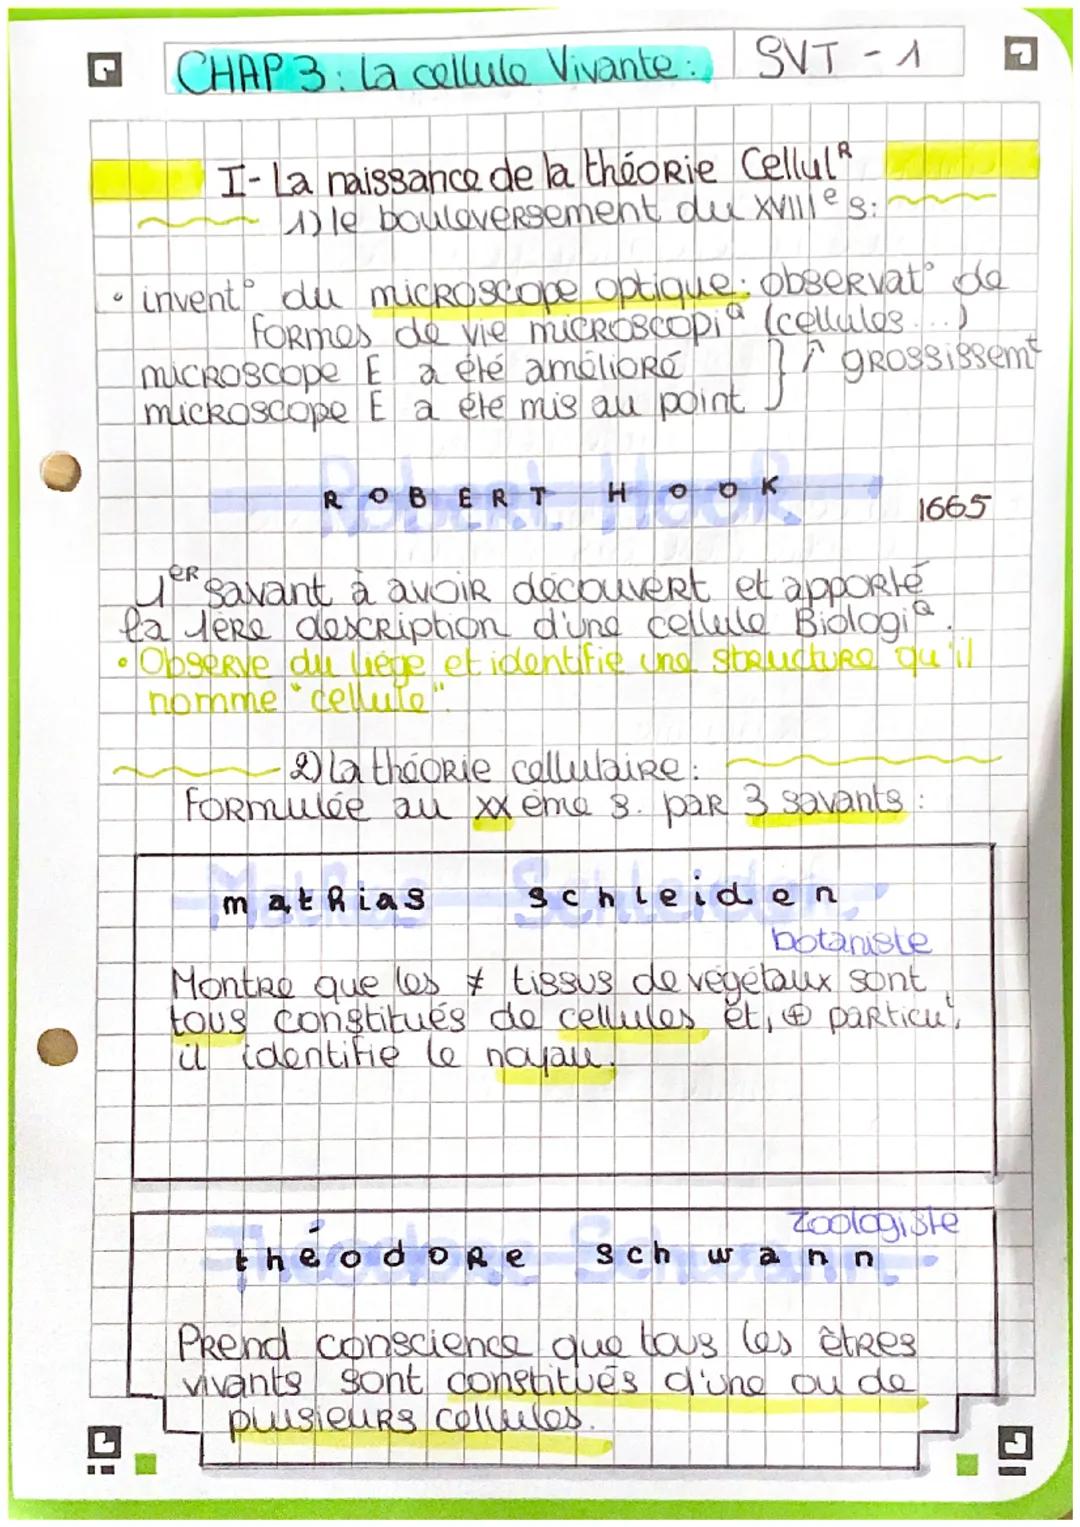 CHAP 3: La cellule Vivante:
SVT - 1
I- La naissance de la théorie Cellulᴿ
1) le bouleversement du XVIIIᵉ s:
• inventᵒ du microscope optique: observatᵒ de
formes de vie microscopiQ (cellules...)
microscope E a été amélioré
microscope E a été mis au point
} ↗ grossissemt
Robert Hook
ROBERT HOOK
1665
1er savant à avoir découvert et apporté
la 1ère description d'une cellule BiologiQ.
• Observe du liège et identifie une structure qu'il
nomme "cellule".
2) La théorie cellulaire:
Formulée au XXème s. par 3 savants:
Mathias Schleiden
mathias schleiden
botaniste
Montre que les ≠ tissus de végétaux sont
tous constitués de cellules et, ⊕ particut,
il identifie le noyau.
Zoologiste
Théodore Schwann
théodore schwann
Prend conscience que tous les êtres
vivants sont constitués d'une ou de
plusieurs cellules.